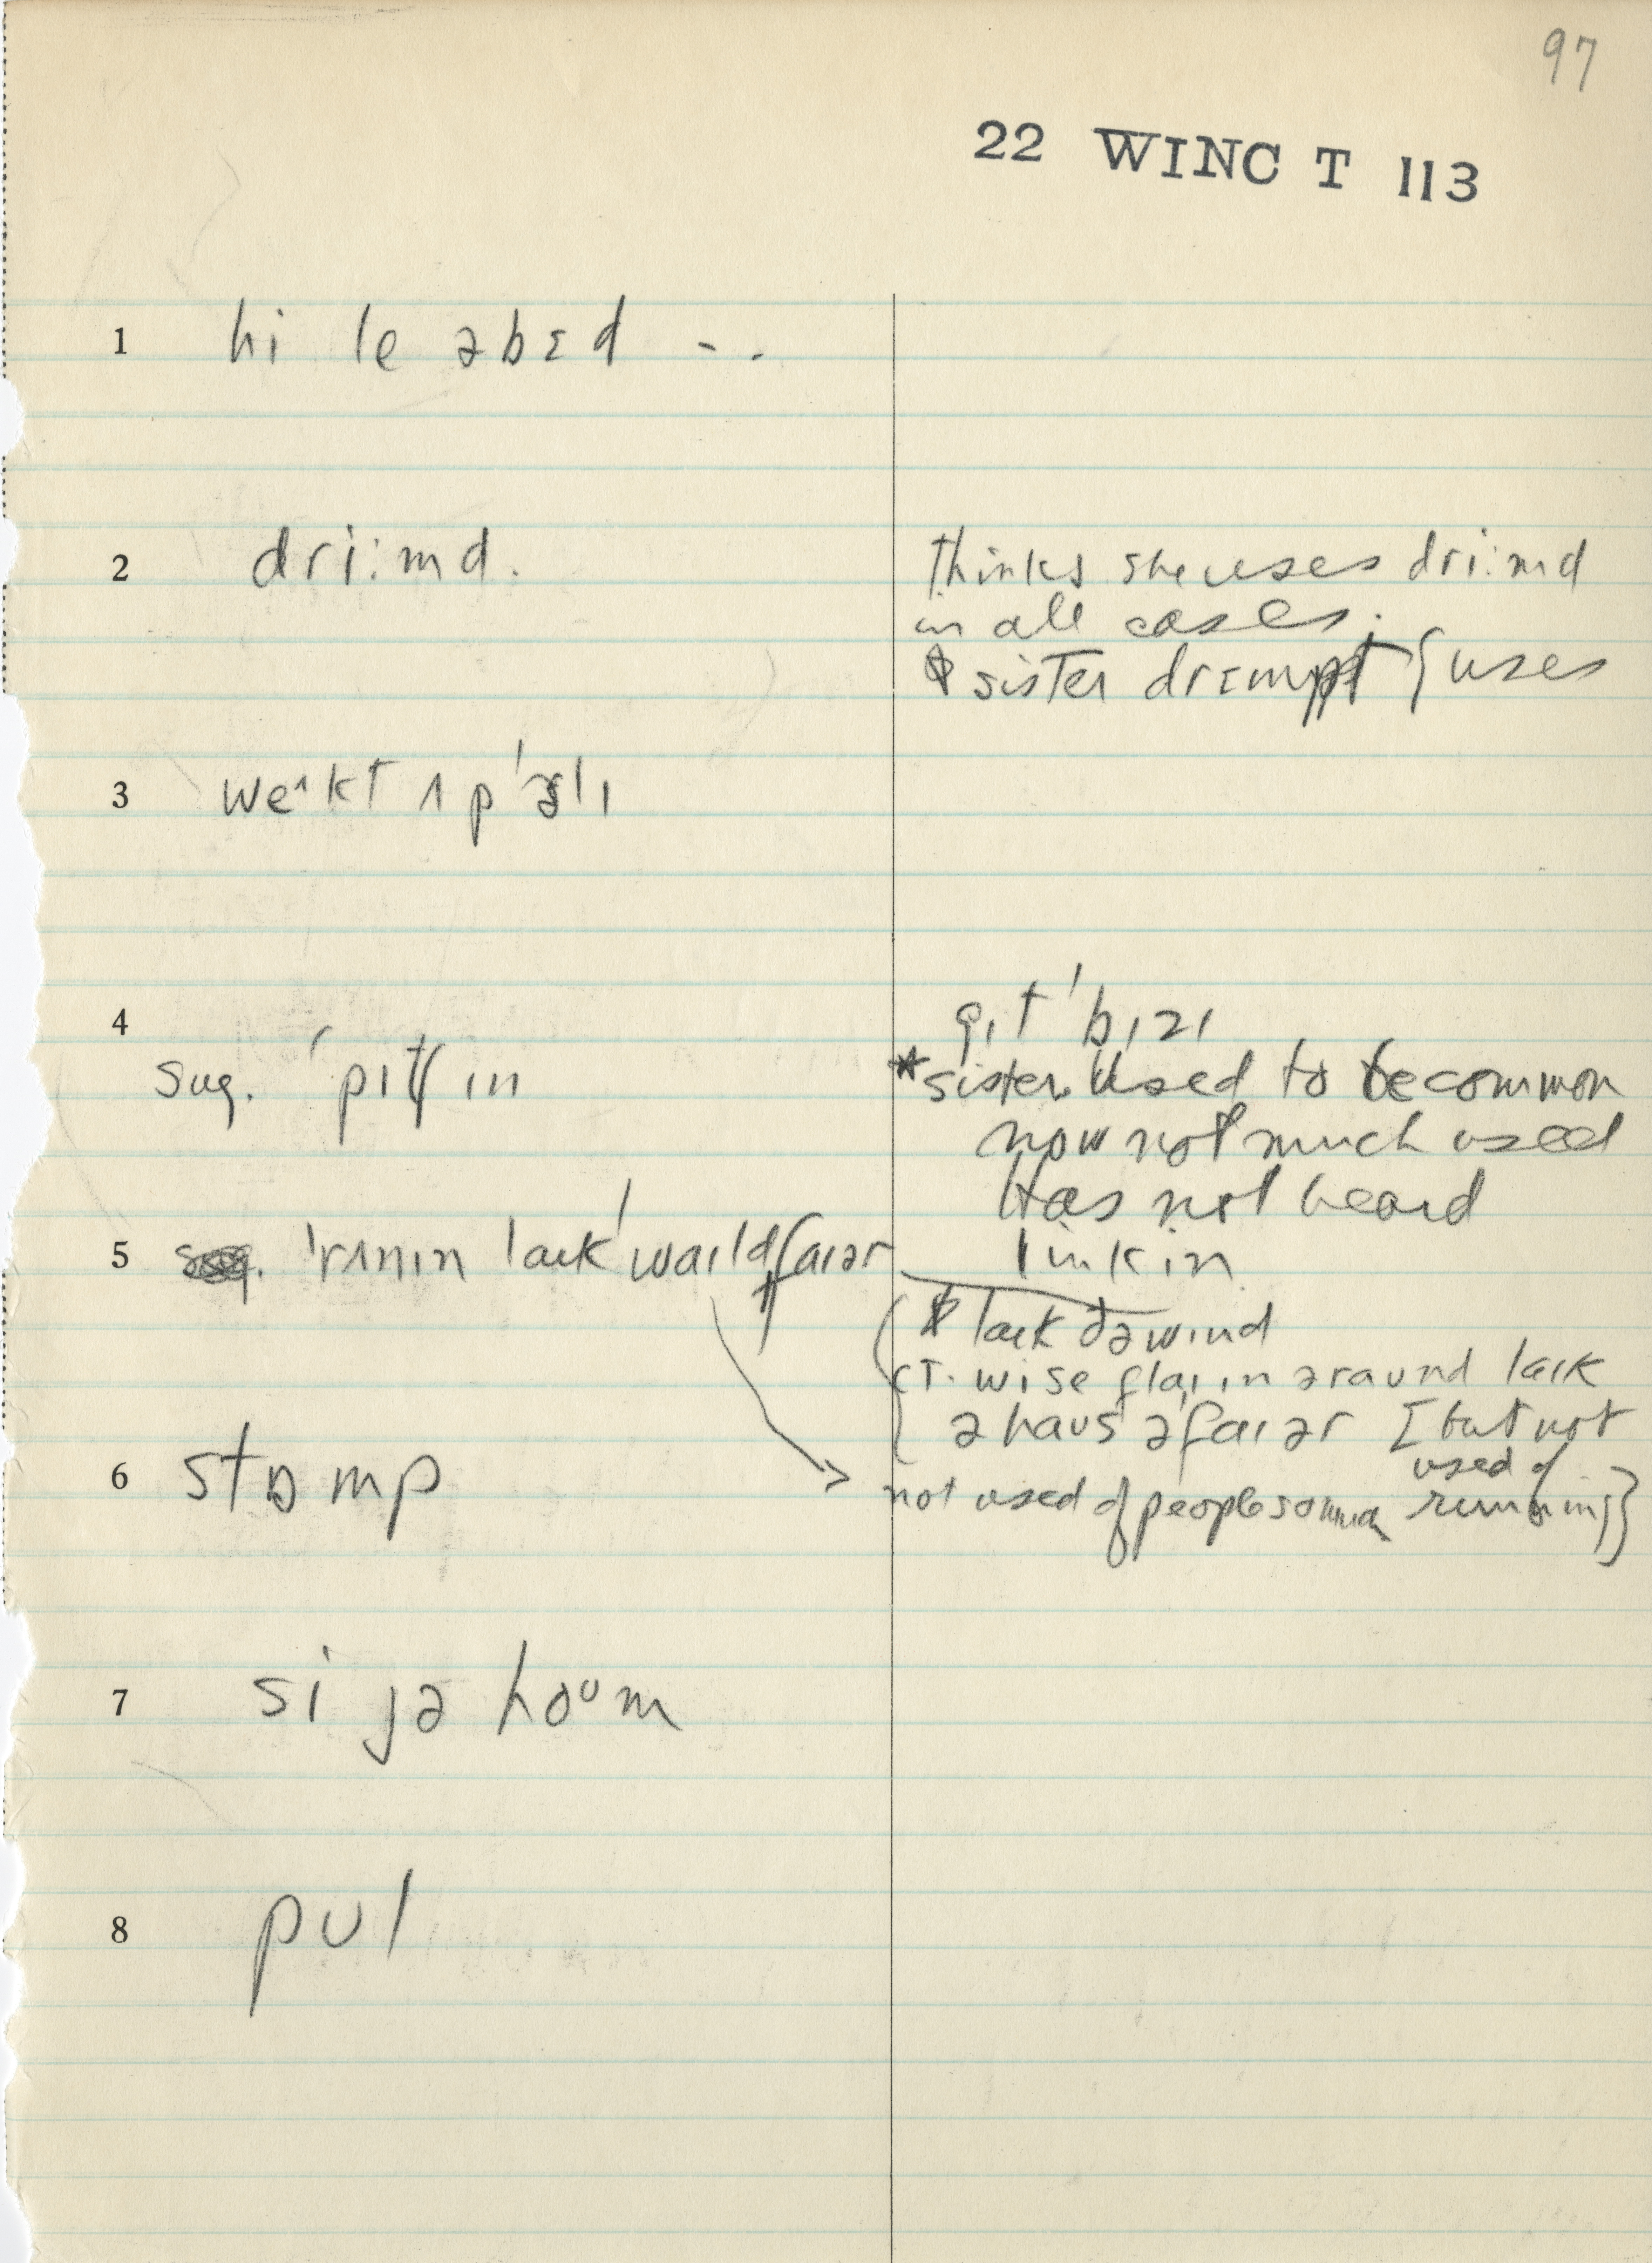 97
22 WINC T 113
1 hi le əbɛd - .
2 dri:md.
thinks she uses dri:md
in all cases.
sister drɛmpt { uses
3 weˆkt ʌp 'ɜlɪ
4
gɪt 'bɪzɪ
sug. 'pɪtʃ ɪn
* sister. Used to be common
now not much used
Has not heard
5 'rʌnɪn laɪk 'waɪld faɪər
link in
laɪk ðə wɪnd
ct. wise flaɪɪn əraund laɪk
ə haus əfaɪər [but not
used of
running]}
6 stɒmp
not used of people so much
7 si jə hoᴜm
8 pʊl